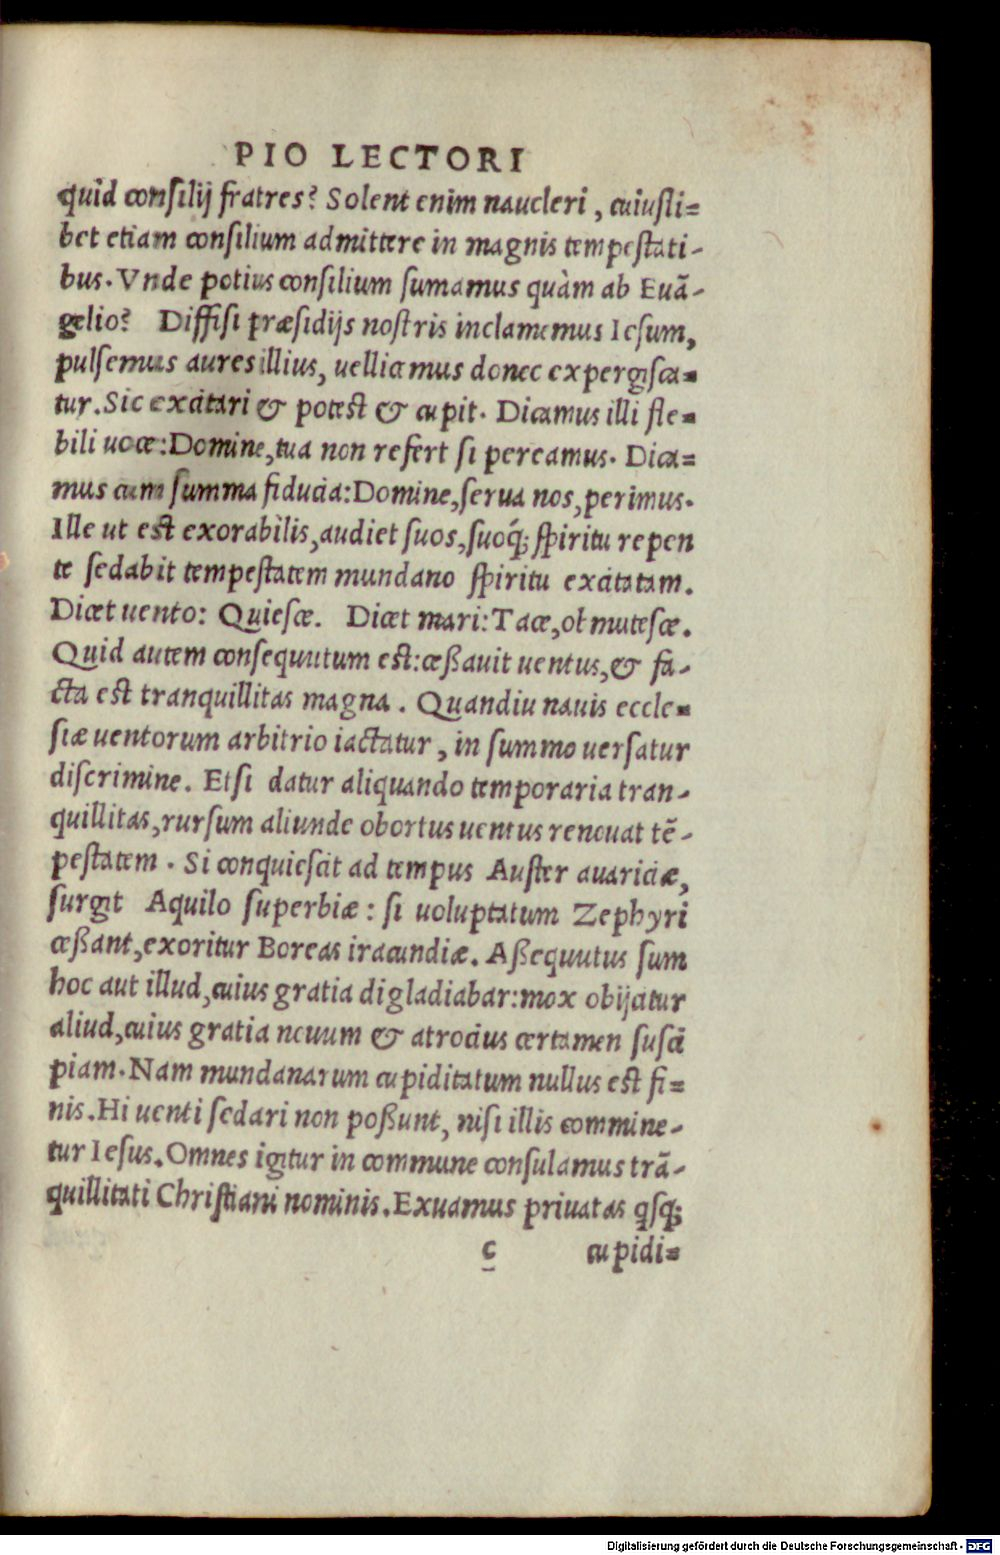 PIO LECTORI
quid consilij fratres? Solent enim naucleri, cuiusli=
bet etiam consilium admittere in magnis tempestati-
bus. Vnde potius consilium sumamus quàm ab Euā-
gelio? Diffisi præsidijs nostris inclamemus Iesum,
pulsemus aures illius, uellicemus donec expergisca=
tur. Sic excitari & potest & cupit. Dicamus illi fle=
bili uoce: Domine, tua non refert si pereamus. Dica=
mus cum summa fiducia: Domine, serua nos, perimus.
Ille ut est exorabilis, audiet suos, suoq́; spiritu repen
te sedabit tempestatem mundano spiritu excitatam.
Dicet uento: Quiesce. Dicet mari: Tace, obmutesce.
Quid autem consequutum est: ceßauit uentus, & fa-
cta est tranquillitas magna. Quandiu nauis eccle=
siæ uentorum arbitrio iactatur, in summo uersatur
discrimine. Etsi datur aliquando temporaria tran-
quillitas, rursum aliunde obortus uentus renouat tē-
pestatem. Si conquiescit ad tempus Auster auariciæ,
surgit Aquilo superbiæ: si uoluptatum Zephyri
ceßant, exoritur Boreas iracundiæ. Aßequutus sum
hoc aut illud, cuius gratia digladiabar: mox obijcitur
aliud, cuius gratia nouum & atrocius certamen susci
piam. Nam mundanarum cupiditatum nullus est fi=
nis. Hi uenti sedari non poßunt, nisi illis commine-
tur Iesus. Omnes igitur in commune consulamus trā-
quillitati Christiani nominis. Exuamus priuatas qsq;
c cupidi=
Digitalisierung gefördert durch die Deutsche Forschungsgemeinschaft - DFG